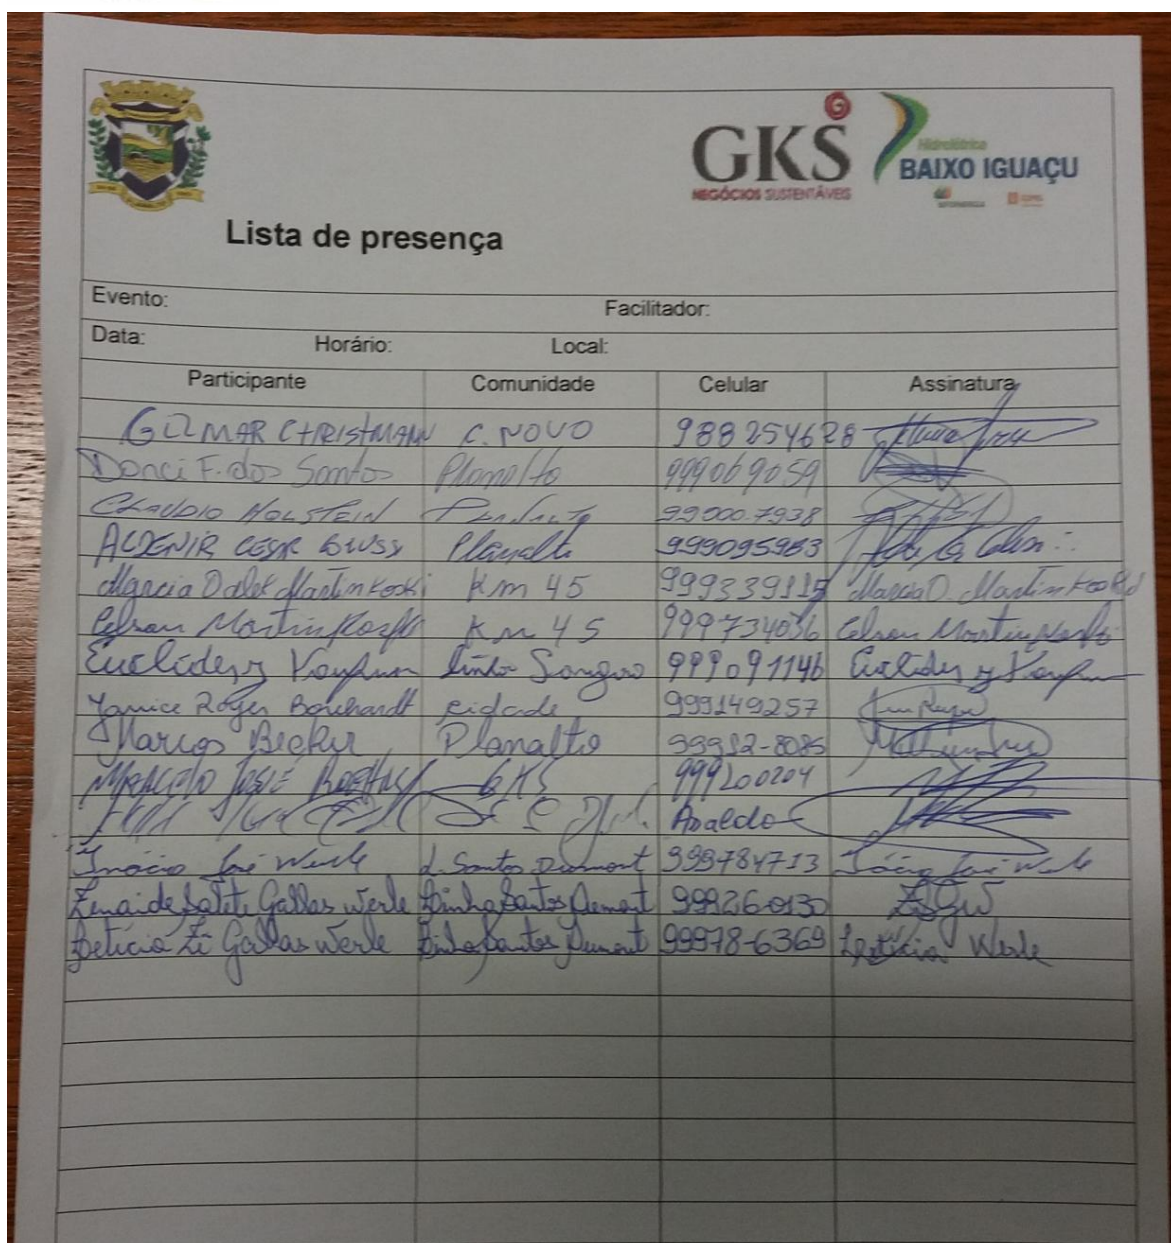 GKS
NEGÓCIOS SUSTENTÁVEIS
Hidrelétrica
BAIXO IGUAÇU
Lista de presença
Evento: Facilitador:
Data: Horário: Local:
Participante Comunidade Celular Assinatura
GILMAR CHRISTMANN C. NOVO 988254628
Donci F. dos Santos Planalto 999069059
CLAUDIO HOLSTEIN Planalto 99000.7938
ALDENIR CESAR Planalto 999095983
Marcia Dalet Martinkoski Km 45 999339115 Marcia D. Martinkoski
Celson Martinkoski Km 45 999734036 Celson Martinkoski
Euclides Linha 999091146 Euclides
Janice Roger Borchardt cidade 999149257
Marcos Becker Planalto 99912-8085
MARCELO JOSÉ GKS 999200204
Inácio José Werle L. Santos Dumont 999784713 Inácio José Werle
Zenaide Salete Gallas Werle Linha Santos Dumont 99926-0130 ZSGW
Letícia Gallas Werle Linha Santos Dumont 99978-6369 Letícia Werle